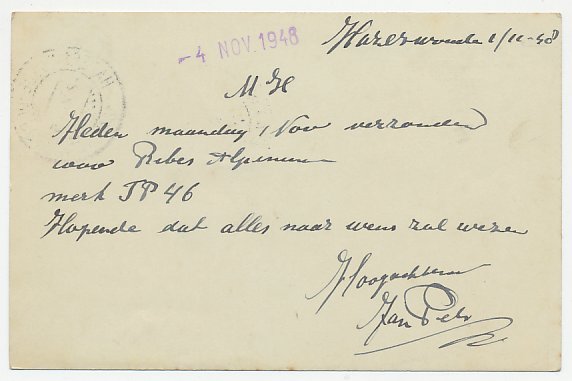 -4 NOV. 1948
Hazerswoude 1/11-48
M H
Heden maandag 1 Nov verzonden
1000 Ribes Alpinum
merk JP 46
Hopende dat alles naar wens zal wezen
Hoogachtend
Jan Pels